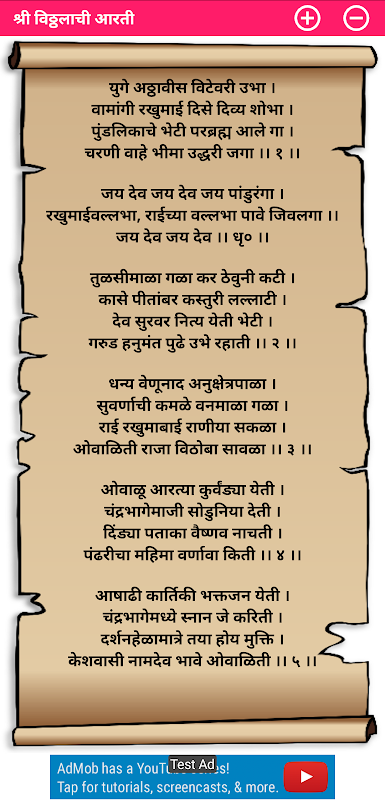 श्री विठ्ठलाची आरती
युगे अठ्ठावीस विटेवरी उभा ।
वामांगी रखुमाई दिसे दिव्य शोभा ।
पुंडलिकाचे भेटी परब्रह्म आले गा ।
चरणी वाहे भीमा उद्धरी जगा ।। १ ।।
जय देव जय देव जय पांडुरंगा ।
रखुमाईवल्लभा, राईच्या वल्लभा पावे जिवलगा ।।
जय देव जय देव ।। धृ० ।।
तुळसीमाळा गळा कर ठेवुनी कटी ।
कासे पीतांबर कस्तुरी लल्लाटी ।
देव सुरवर नित्य येती भेटी ।
गरुड हनुमंत पुढे उभे रहाती ।। २ ।।
धन्य वेणूनाद अनुक्षेत्रपाळा ।
सुवर्णाची कमळे वनमाळा गळा ।
राई रखुमाबाई राणीया सकळा ।
ओवाळिती राजा विठोबा सावळा ।। ३ ।।
ओवाळू आरत्या कुर्वंड्या येती ।
चंद्रभागेमाजी सोडुनिया देती ।
दिंड्या पताका वैष्णव नाचती ।
पंढरीचा महिमा वर्णावा किती ।। ४ ।।
आषाढी कार्तिकी भक्तजन येती ।
चंद्रभागेमध्ये स्नान जे करिती ।
दर्शनहेळामात्रे तया होय मुक्ति ।
केशवासी नामदेव भावे ओवाळिती ।। ५ ।।
Test Ad
AdMob has a YouTube series!
Tap for tutorials, screencasts, & more.